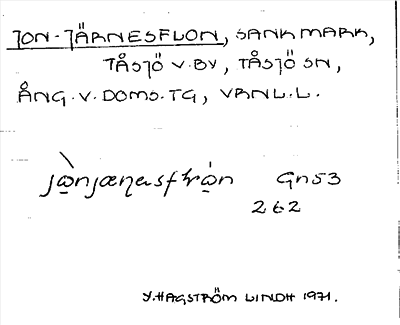 JON-JÄRNESFLON, SANKMARK,
TÅSJÖ V.BY, TÅSJÖ SN,
ÅNG.V.DOMS.TG, VRNL.L.
Gn53
262
Y.HAGSTRÖM LINDH 1971.